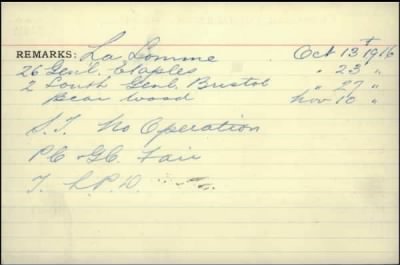 REMARKS: La Somme Oct 13 1916
26 Genl. Etaples " 23 "
2 South Genl. Bristol " 27 "
Bear Wood Nov 10 "
S.I. No Operation
P.C. G.C. Fair